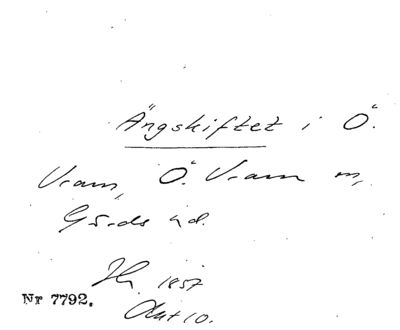 Ängskiftet i Ö.
Vram, Ö. Vram m,
Gärds hd.
1857
Nr 7792.
Akt 10.